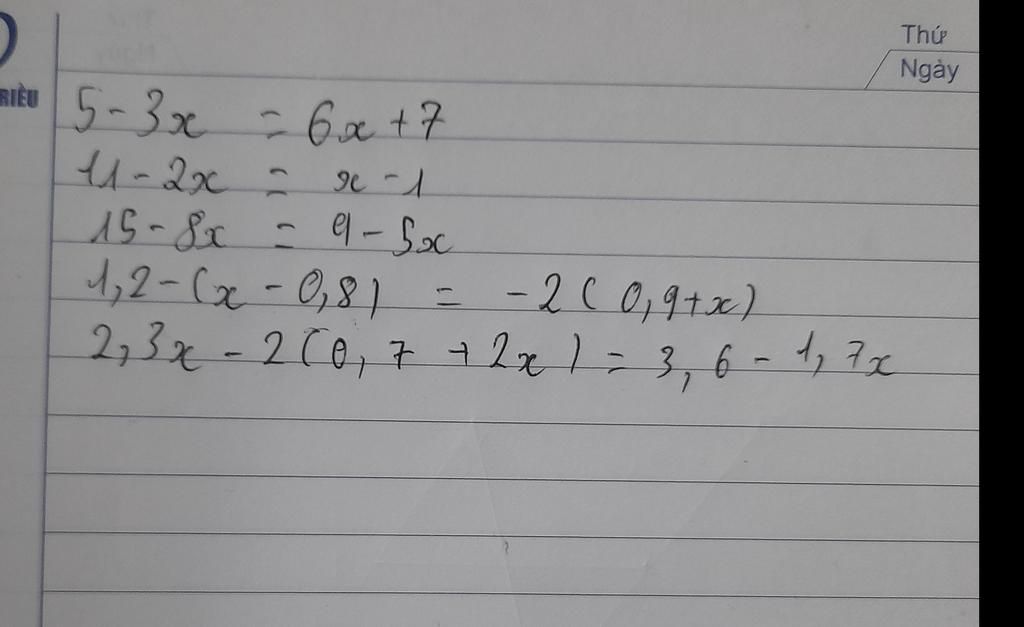 Thứ
Ngày
RIÈU
5 - 3x = 6x + 7
11 - 2x = x - 1
15 - 8x = 9 - 5x
1,2 - (x - 0,8) = -2(0,9 + x)
2,3x - 2(0,7 + 2x) = 3,6 - 1,7x